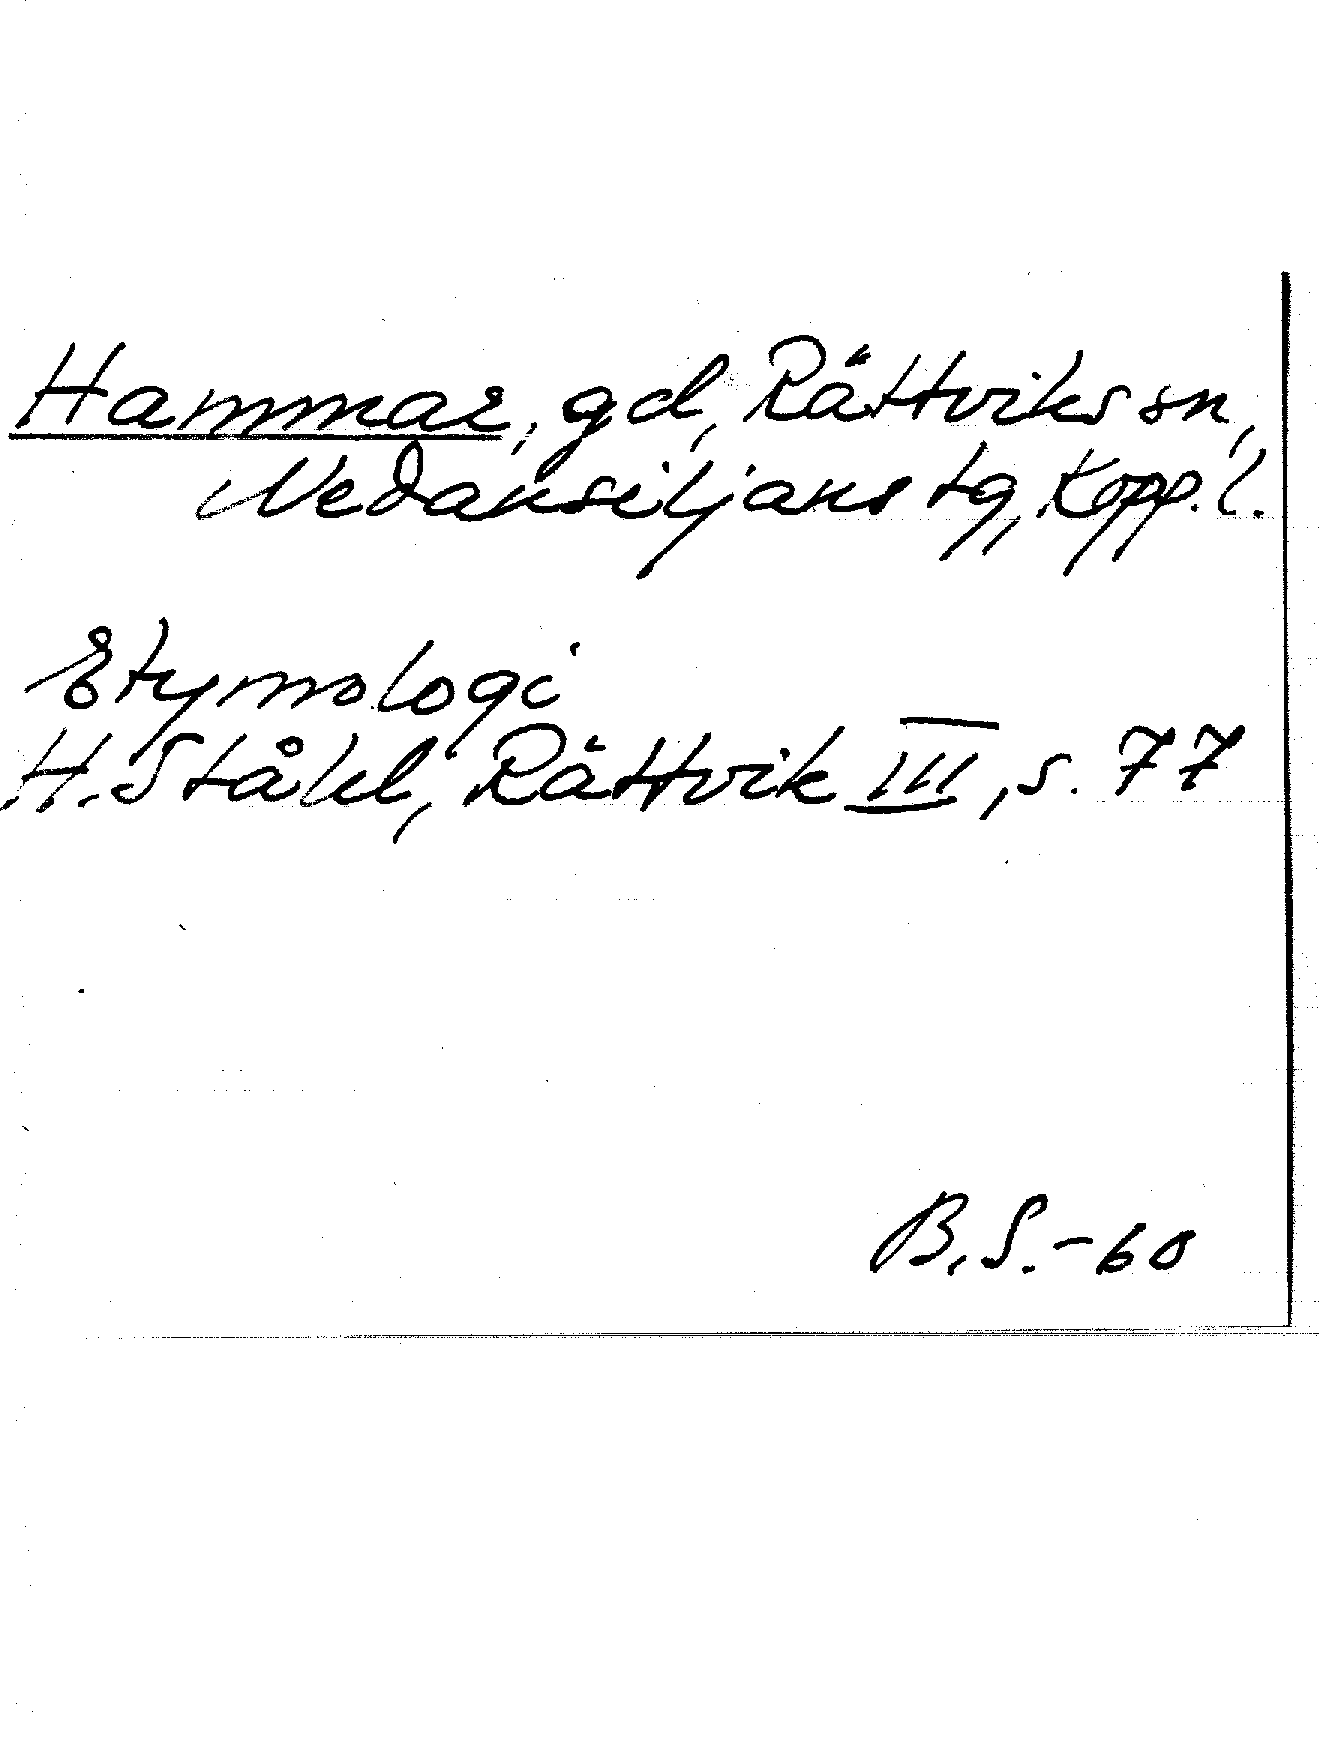 Hammar, gd, Rättviks sn,
Nedansiljans tg, Kopp. l.
Etymologi
H. Ståhl, Rättvik III, s. 77
B.S.-60